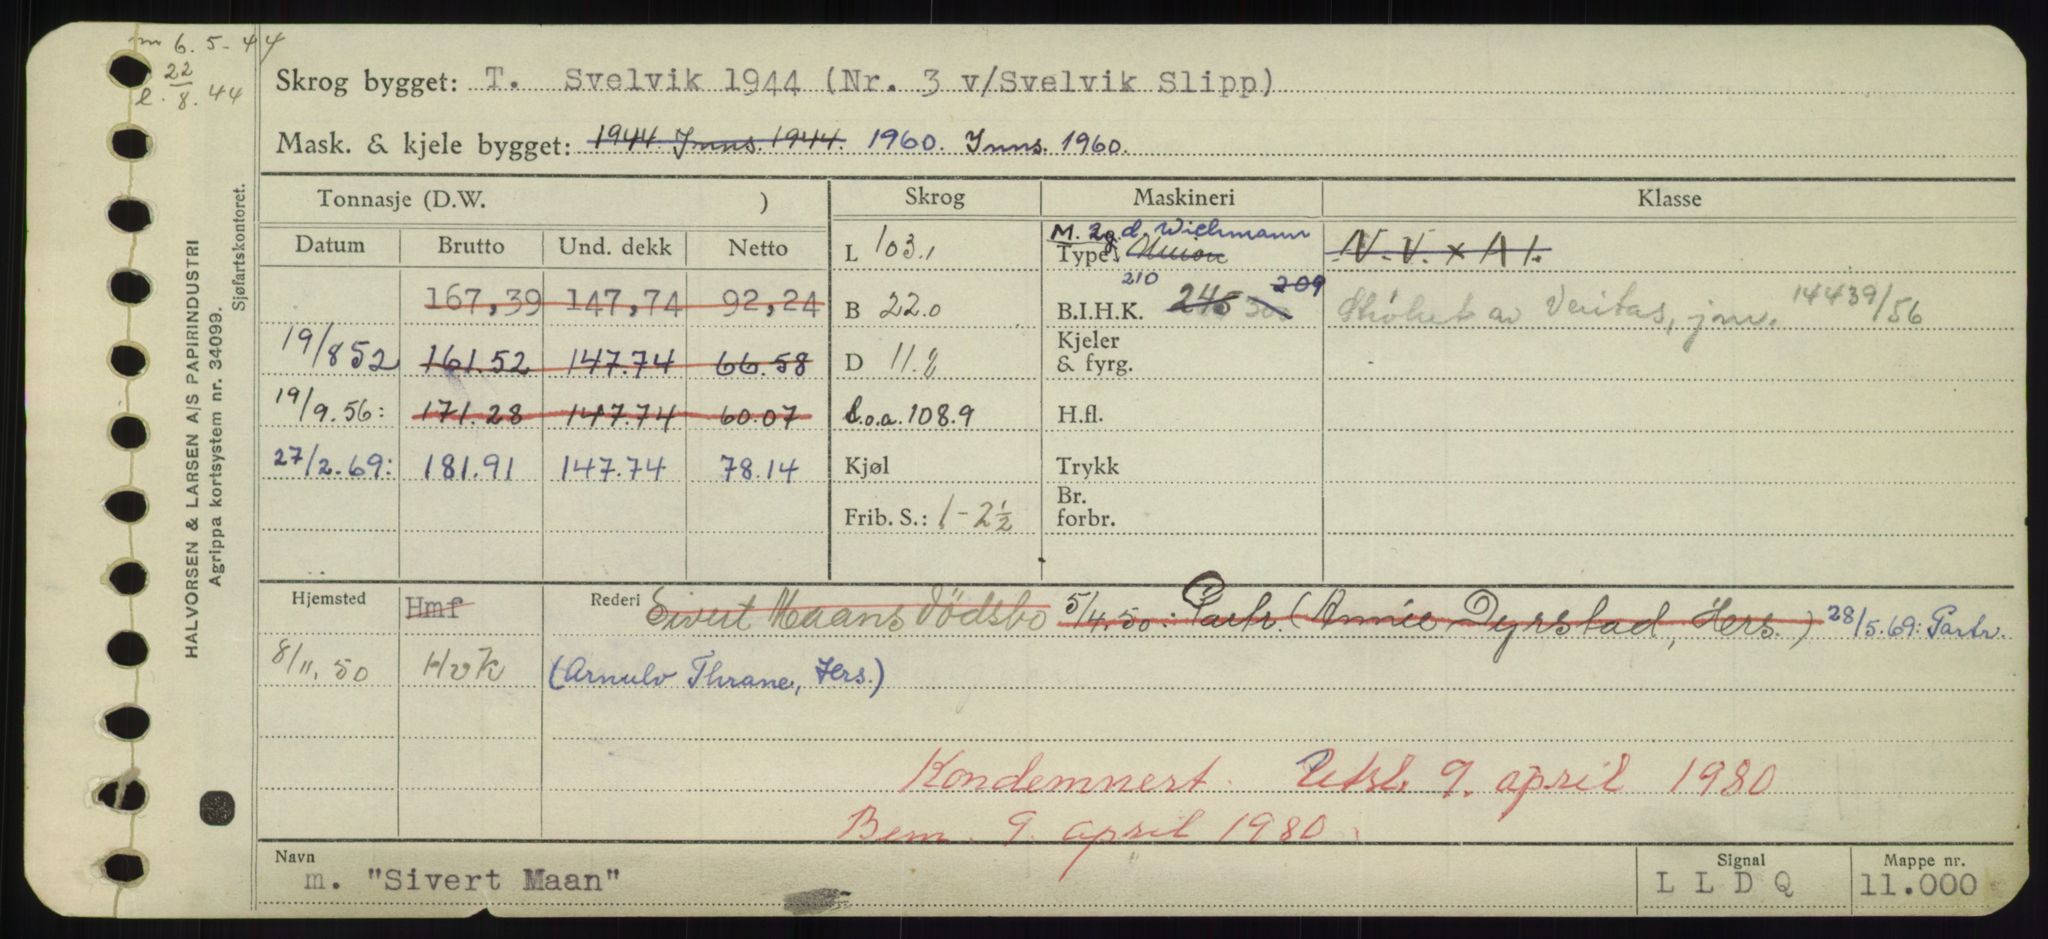 m 6.5-44
l. 22/8.44
Skrog bygget: T. Svelvik 1944 (Nr. 3 v/Svelvik Slipp)
Mask. & kjele bygget: 1944 Inns. 1944 1960. Inns. 1960.
HALVORSEN & LARSEN A/S PAPIRINDUSTRI
Agrippa kortsystem nr. 34099.
Sjøfartskontoret.
Tonnasje (D.W. ) Skrog Maskineri Klasse
Datum Brutto Und. dekk Netto
L 103.1
M. 2 d. Wichmann
Type Union
N.V. x A 1.
167,39 147,74 92,24
B 22.0
210
B.I.H.K. 245 300 209
Strøket av Veritas, jnr. 14439/56
19/8 52 161.52 147.74 66.58
D 11.2
Kjeler
& fyrg.
19/9.56: 171.28 147.74 60.07
l.o.a. 108.9
H.fl.
27/2.69: 181.91 147.74 78.14
Kjøl
Trykk
Frib. S.: 1-2½
Br.
forbr.
Hjemsted Hmf Rederi Sivert Maans Dödsbo 5/4.50: Partr. (Annie Dyrstad, Hers.) 28/5.69: Partr.
8/11.50 Hvk (Arnulv Thrane, Hers.)
Kondemnert. Utsl. 9. april 1980
Bem. 9. april 1980.
Navn Signal Mappe nr.
m. "Sivert Maan" L L D Q 11.000